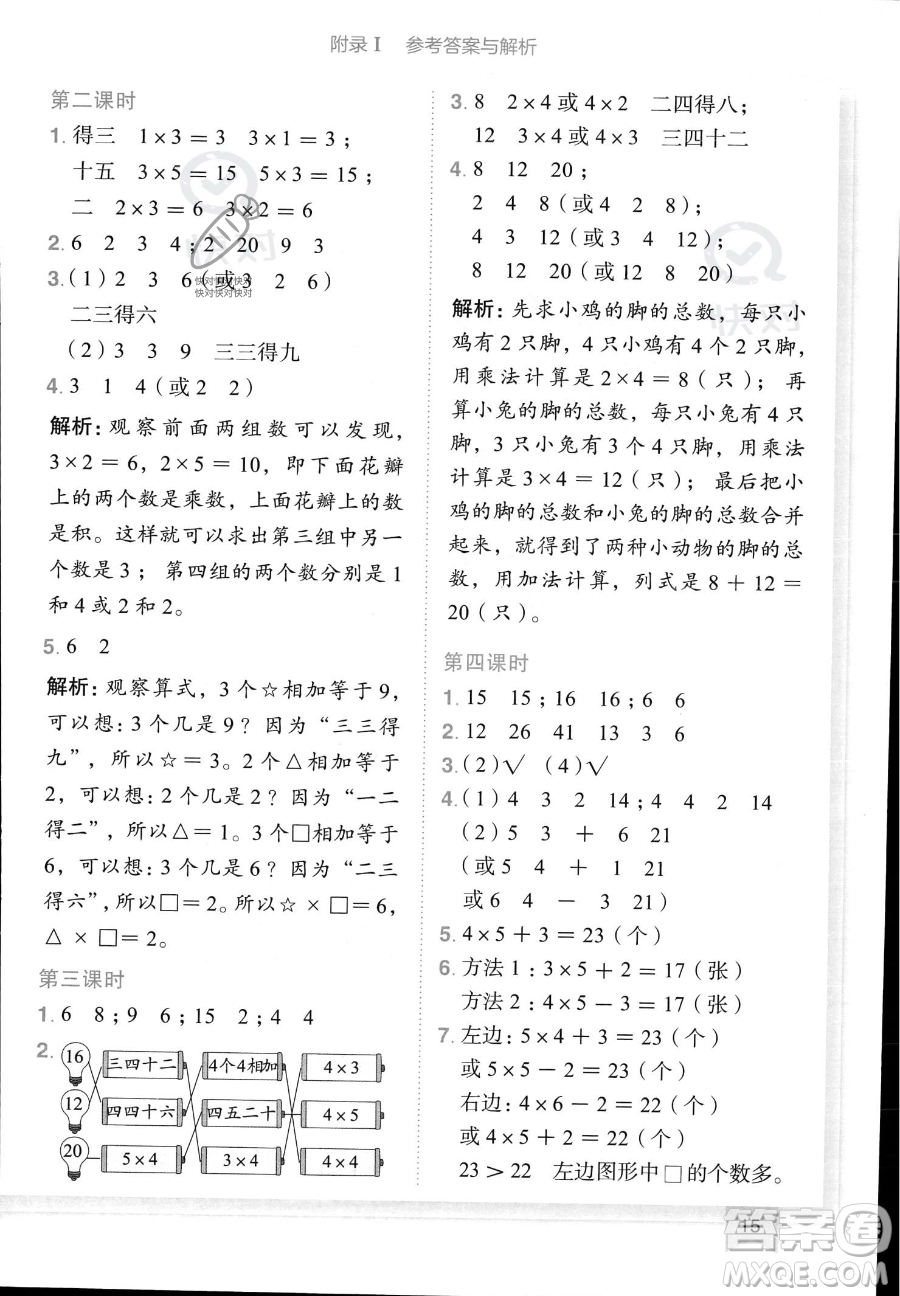 附录Ⅰ 参考答案与解析
第二课时
1. 得三 1×3=3 3×1=3；
十五 3×5=15 5×3=15；
二 2×3=6 3×2=6
2. 6 2 3 4；2 20 9 3
3.（1）2 3 6（或3 2 6）
快对快对快对
快对快对快对
二三得六
（2）3 3 9 三三得九
4. 3 1 4（或2 2）
解析：观察前面两组数可以发现，
3×2=6，2×5=10，即下面花瓣
上的两个数是乘数，上面花瓣上的数
是积。这样就可以求出第三组中另一
个数是3；第四组的两个数分别是1
和4或2和2。
5. 6 2
解析：观察算式，3个☆相加等于9，
可以想：3个几是9？因为“三三得
九”，所以☆=3。2个△相加等于2，
可以想：2个几是2？因为“一二
得二”，所以△=1。3个□相加等于
6，可以想：3个几是6？因为“二三
得六”，所以□=2。所以☆×□=6，
△×□=2。
第三课时
1. 6 8；9 6；15 2；4 4
2. 16 三四十二 4个4相加 4×3
12 四四十六 四五二十 4×5
20 5×4 3×4 4×4
3. 8 2×4或4×2 二四得八；
12 3×4或4×3 三四十二
4. 8 12 20；
2 4 8（或4 2 8）；
3 4 12（或4 3 12）；
8 12 20（或12 8 20）
快对
解析：先求小鸡的脚的总数，每只小
鸡有2只脚，4只小鸡有4个2只脚，
用乘法计算是2×4=8（只）；再
算小兔的脚的总数，每只小兔有4只
脚，3只小兔有3个4只脚，用乘法
计算是3×4=12（只）；最后把小
鸡的脚的总数和小兔的脚的总数合并
起来，就得到了两种小动物的脚的总
数，用加法计算，列式是8+12=
20（只）。
第四课时
1. 15 15；16 16；6 6
2. 12 26 41 13 3 6
3.（2）√ （4）√
4.（1）4 3 2 14；4 4 2 14
（2）5 3 + 6 21
（或5 4 + 1 21
或6 4 - 3 21）
5. 4×5+3=23（个）
6. 方法1：3×5+2=17（张）
方法2：4×5-3=17（张）
7. 左边：5×4+3=23（个）
或5×5-2=23（个）
右边：5×4+2=22（个）
或4×6-2=22（个）
23＞22 左边图形中□的个数多。
15
答案卷
MXQE.COM